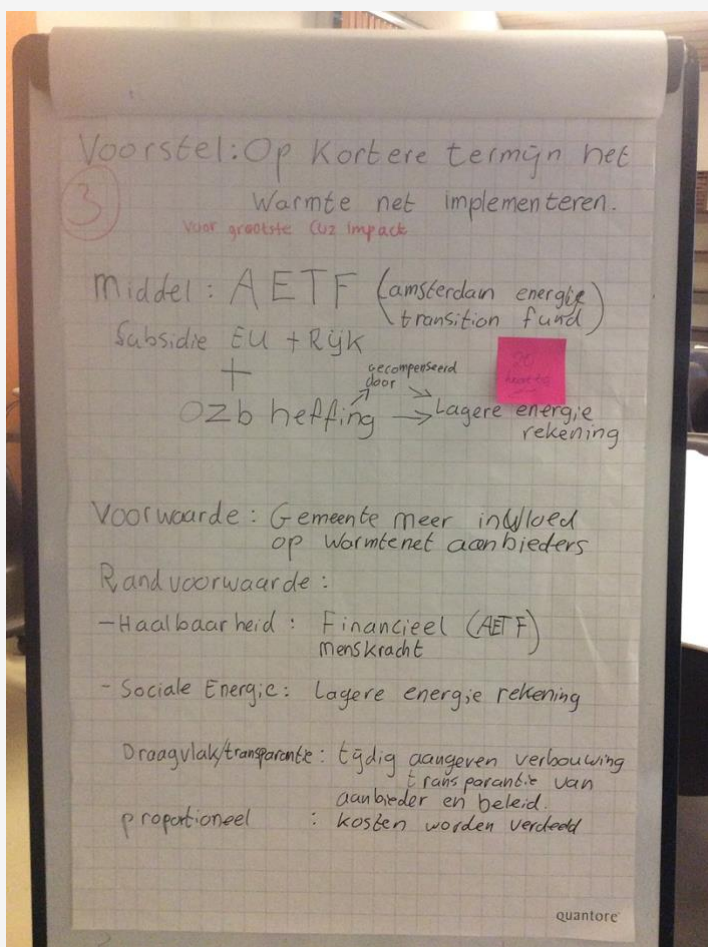 Voorstel: Op Kortere termijn het
Warmte net implementeren.
3
voor grootste CO2 impack
middel: AETF (amsterdam energie
transition fund)
Subsidie EU + Rijk
+
gecompenseerd
door
OZB heffing → Lagere energie
rekening
Voorwaarde: Gemeente meer invloed
op warmtenet aanbieders
Randvoorwaarde:
- Haalbaarheid: Financieel (AETF)
menskracht
- Sociale Energie: Lagere energie rekening
Draagvlak/transparantie: tijdig aangeven verbouwing
transparantie van
aanbieder en beleid.
proportioneel : kosten worden verdeeld
quantore